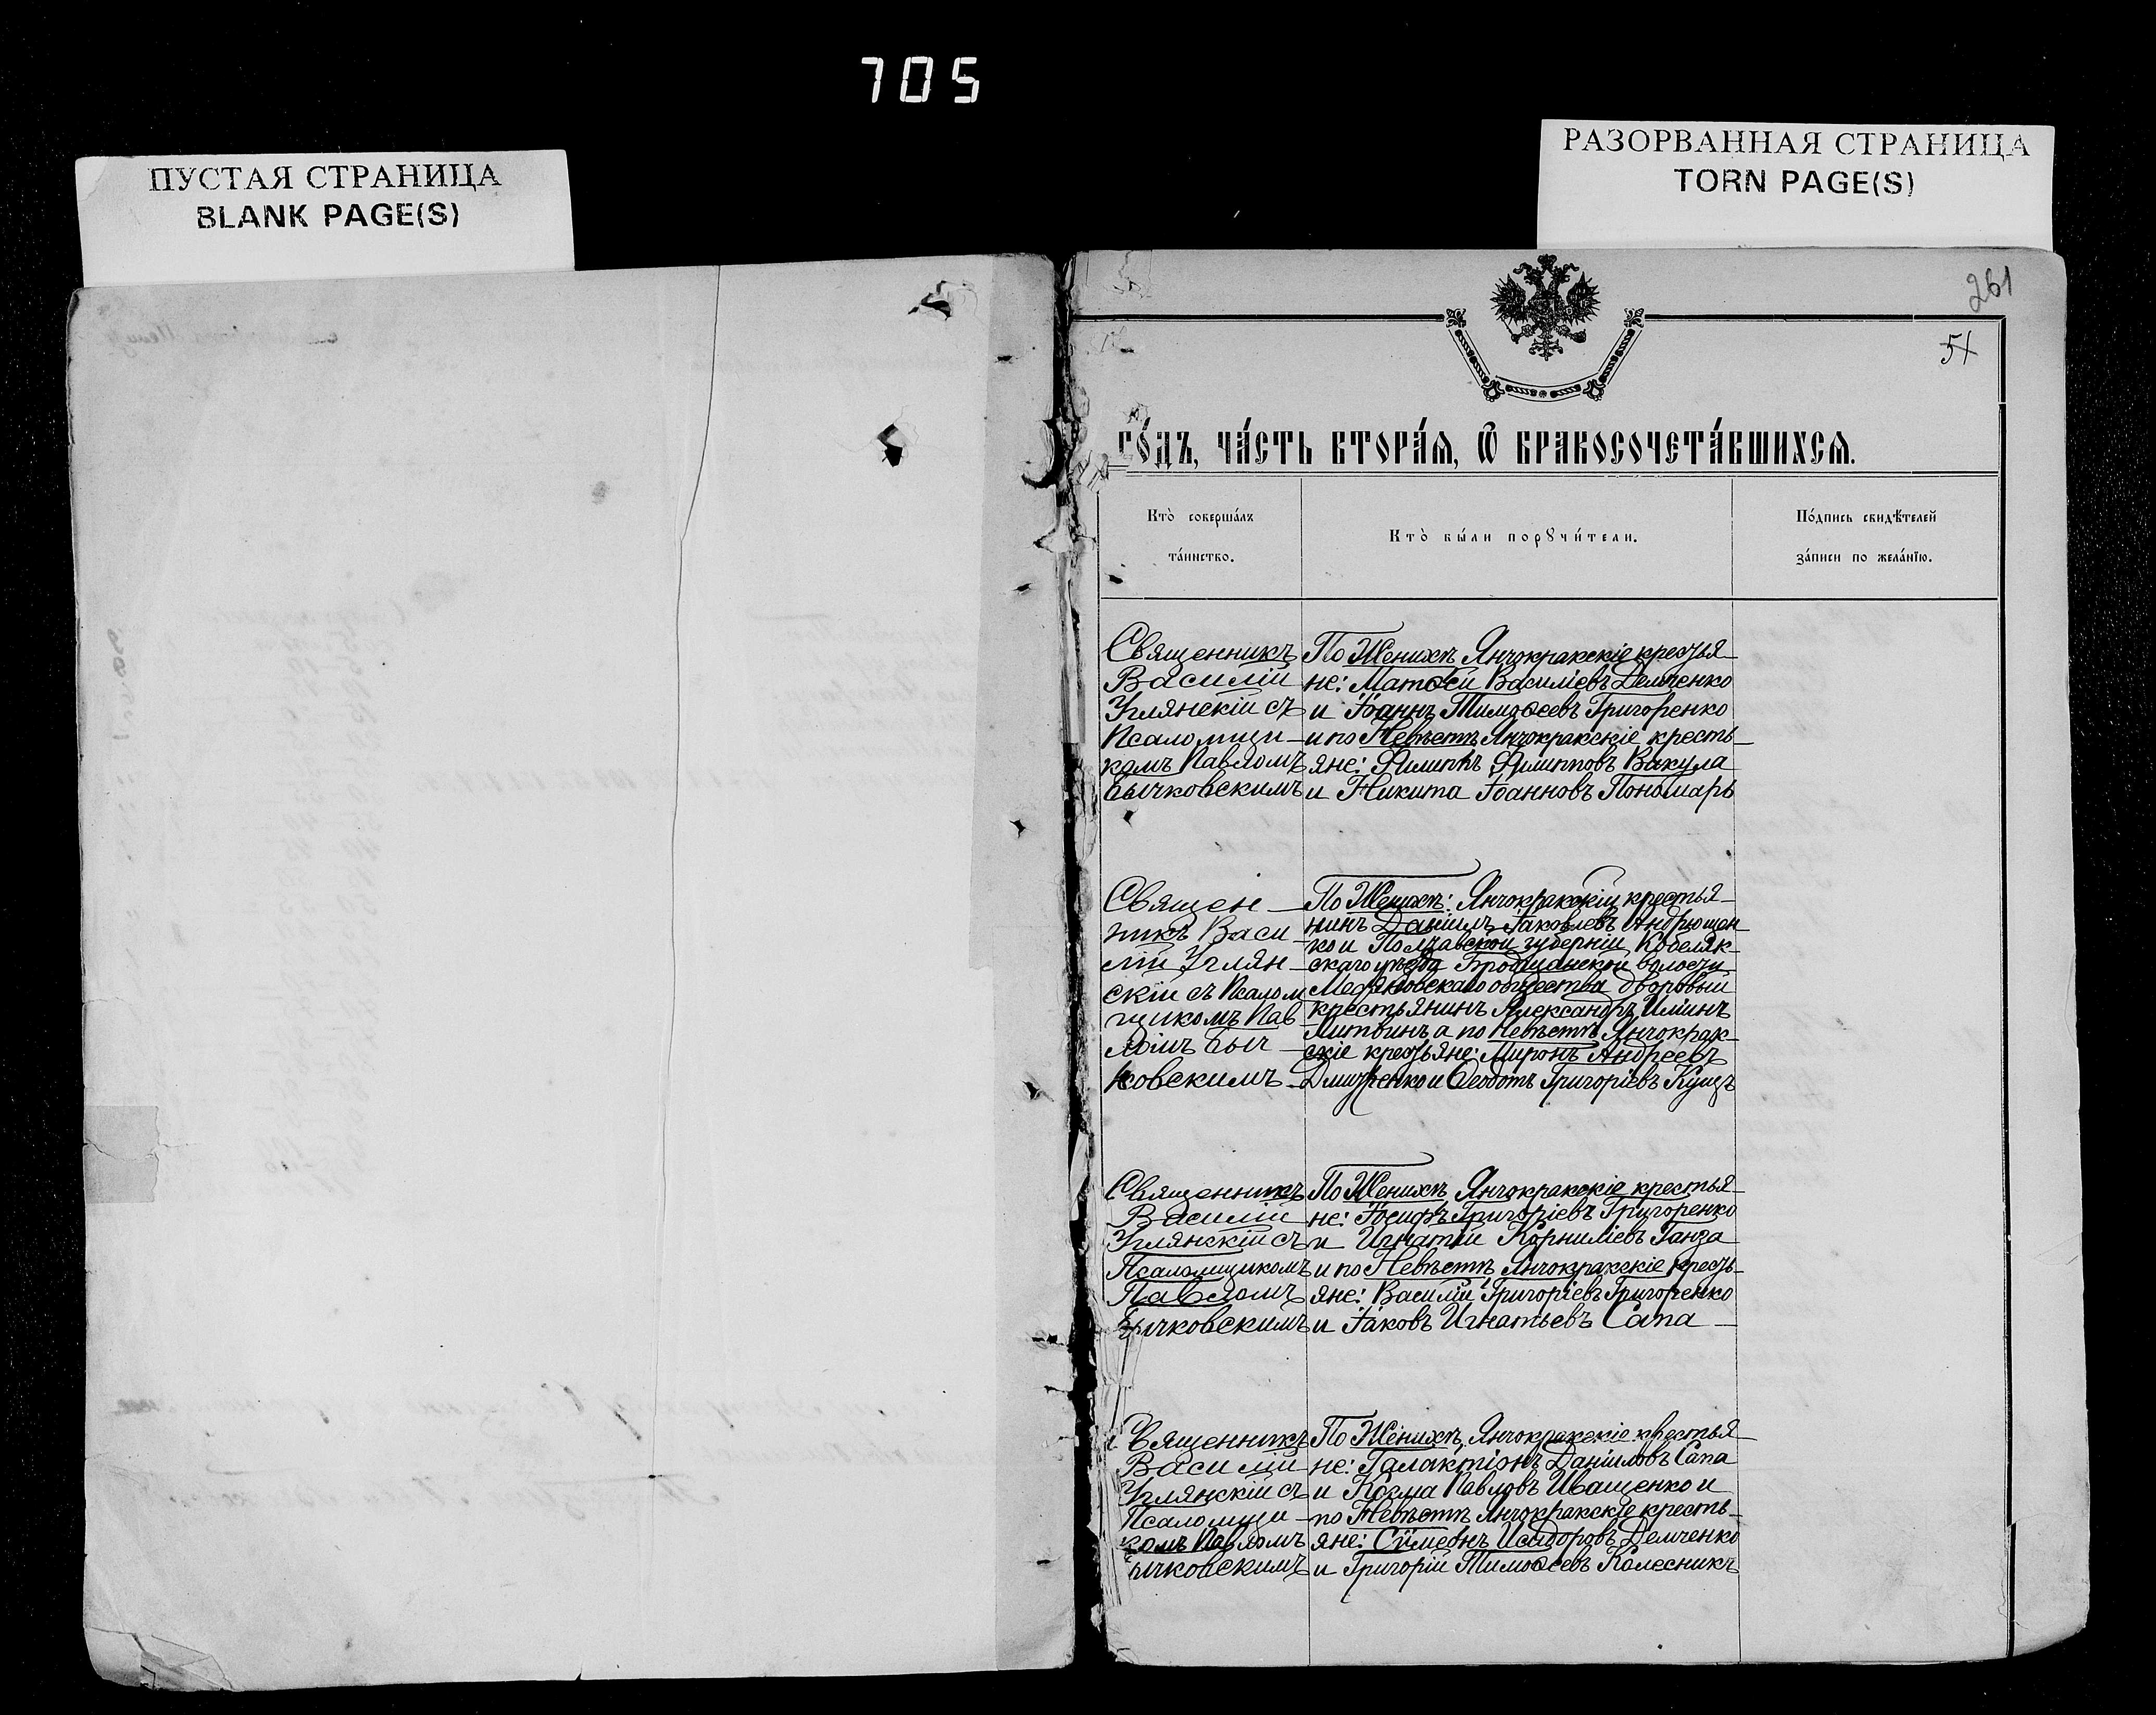 705
ПУСТАЯ СТРАНИЦА
BLANK PAGE(S)
РАЗОРВАННАЯ СТРАНИЦА
TORN PAGE(S)
261
51
го́дъ, ча́сть втора́ѧ, ѡ҆ бракосочета́вшихсѧ.
Кто̀ соверша́лъ
та́инство.
Кто̀ бы́ли порꙋчи́тели.
По́дпись свидѣ́телей
за́писи по жела́нїю.
Священникъ
Василій
Углянскій съ
Псаломщи-
комъ Павломъ
Бычковскимъ
По Женихѣ Янчокракскіе крестья-
не: Матѳей Василіевъ Демченко
и Іоаннъ Тимоѳеевъ Григоренко
и по Невѣстѣ Янчокракскіе кресть-
яне: Филиппъ Филипповъ Вакула
и Никита Іоанновъ Пономарь
Священ-
никъ Васи-
лій Углян-
скій съ Псалом
щикомъ Пав
ломъ Быч-
ковскимъ
По Женихѣ: Янчокракскій крестья-
нинъ Даніилъ Іаковлевъ Андрющен-
ко и Полтавской губерніи Кобеляк-
скаго уѣзда Бродщанской волости
общества дворовый
крестьянинъ Александръ Ильинъ
Литвинъ а по Невѣстѣ Янчокрак-
скіе крестьяне: Миронъ Андреевъ
Дмитренко и Ѳеодотъ Григоріевъ Куцъ
Священникъ
Василій
Углянскій съ
Псаломщикомъ
Павломъ
Бычковскимъ
По Женихѣ Янчокракскіе крестья-
не: Іосифъ Григоріевъ Григоренко
и Игнатій Корниліевъ Ганза
и по Невѣстѣ Янчокракскіе кресть-
яне: Василій Григоріевъ Григоренко
и Іаковъ Игнатьевъ Сапа
Священникъ
Василій
Углянскій съ
Псаломщи-
комъ Павломъ
Бычковскимъ
По Женихѣ Янчокракскіе крестья-
не: Галактіонъ Даніиловъ Сапа
и Козма Павловъ Иващенко и
по Невѣстѣ Янчокракскіе кресть-
яне: Сѵмеонъ Исидоровъ Демченко
и Григорій Тимоѳеевъ Колесникъ